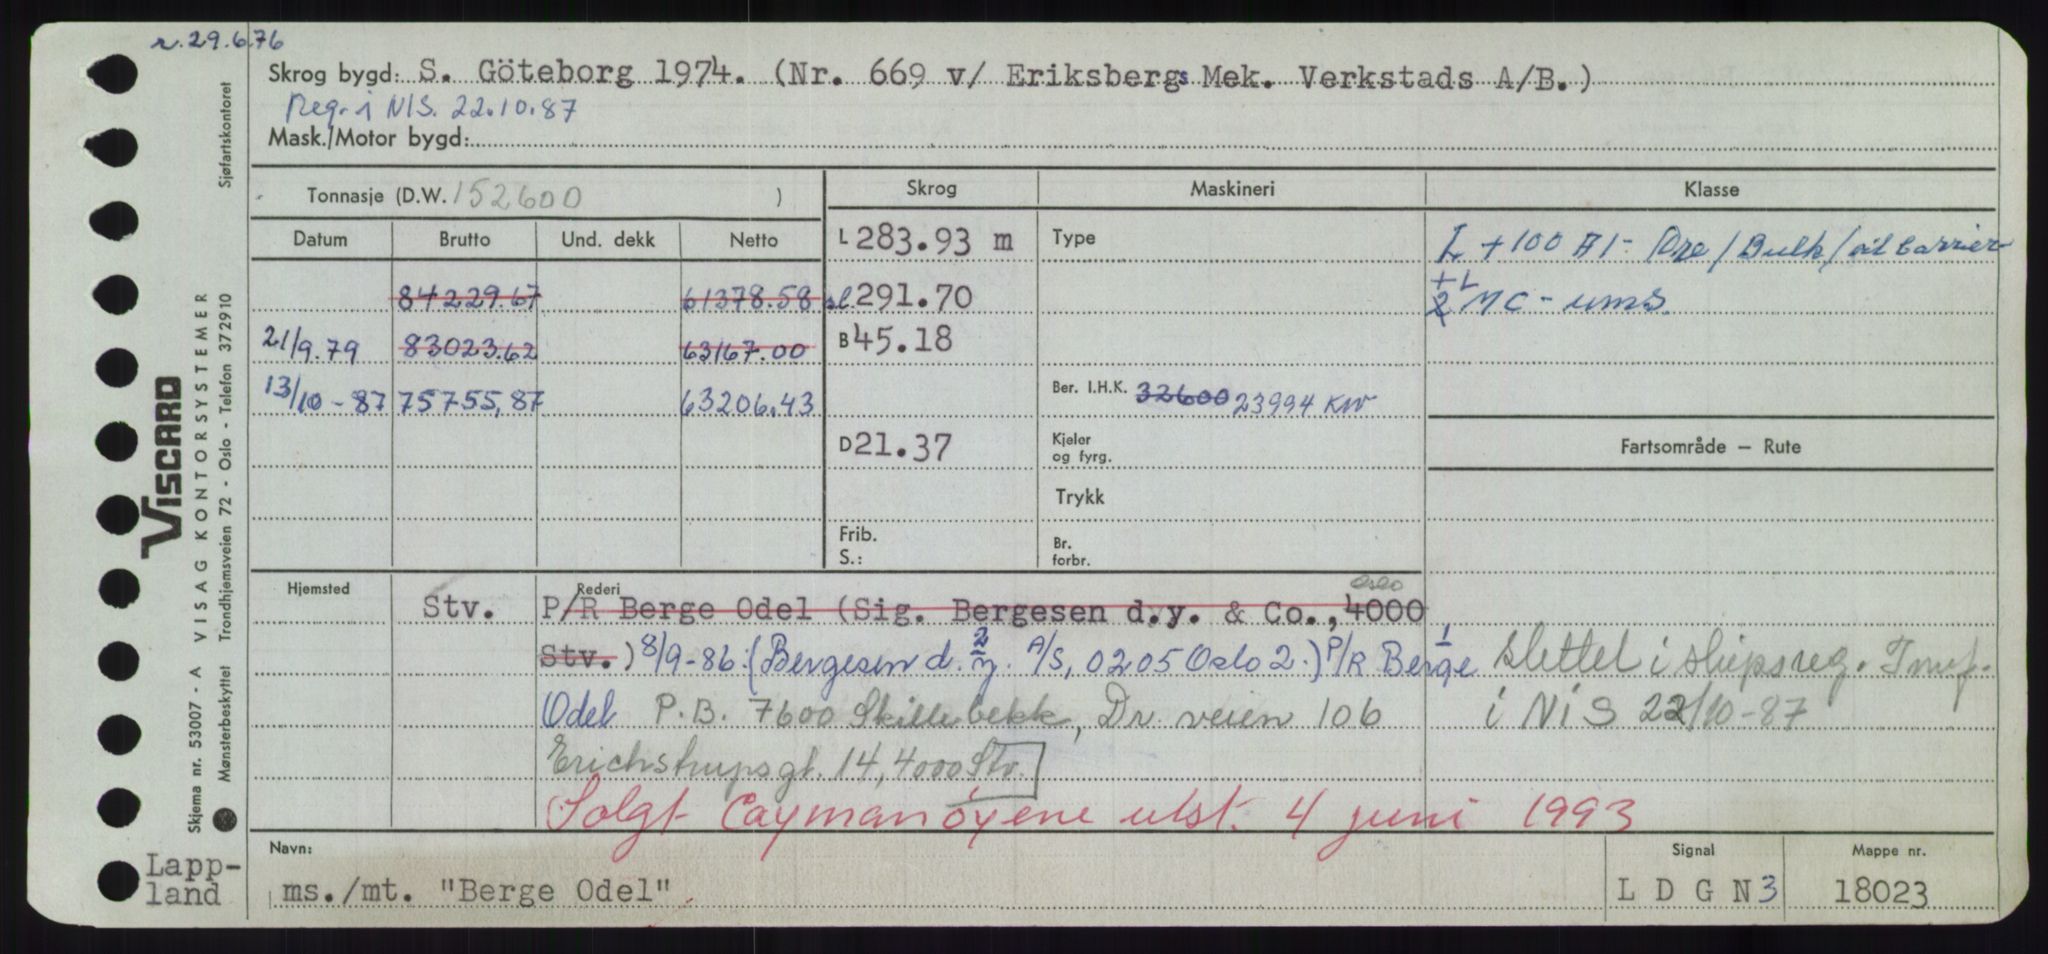 r. 29.6.76
Skrog bygd: S. Göteborg 1974. (Nr. 669 v/ Eriksbergs Mek. Verkstads A/B.)
Reg. i NIS. 22.10.87
Mask./Motor bygd:
Tonnasje (D.W. 152600 )
Skrog
Maskineri
Klasse
Datum Brutto Und. dekk Netto
L 283.93 m
Type
L +100 A1 - Ore/Bulk/oil carrier
84229.67 61378.58
sl. 291.70
+L
2 MC - ums.
21/9.79 83023.62 63167.00
B 45.18
13/10-87 75755,87 63206.43
Ber. I.H.K. 32600 23994 KW
D 21.37
Kjeler og fyrg.
Fartsområde — Rute
Trykk
Frib.
S.:
Br. forbr.
Hjemsted
Rederi
Oslo
Stv. P/R Berge Odel (Sig. Bergesen d.y. & Co., 4000
Stv.) 8/9-86: (Bergesen d.y. A/S, 0205 Oslo 2.) P/R Berge
2
1
Slettet i skipsreg.
Odel P.B. 7600 Skillebekk, Dr. veien 106
i NIS 22/10-87
Erichstrupsgt. 14, 4000 Stv.
Solgt Caymanøyene utst. 4 juni 1993
Navn:
ms./mt. "Berge Odel"
Signal
L D G N 3
Mappe nr.
18023
Lapp-
land
Skjema nr. 53007 - A VISAG KONTORSYSTEMER
Mønsterbeskyttet Trondhjemsveien 72 - Oslo - Telefon 372910
VISCARD
Sjøfartskontoret